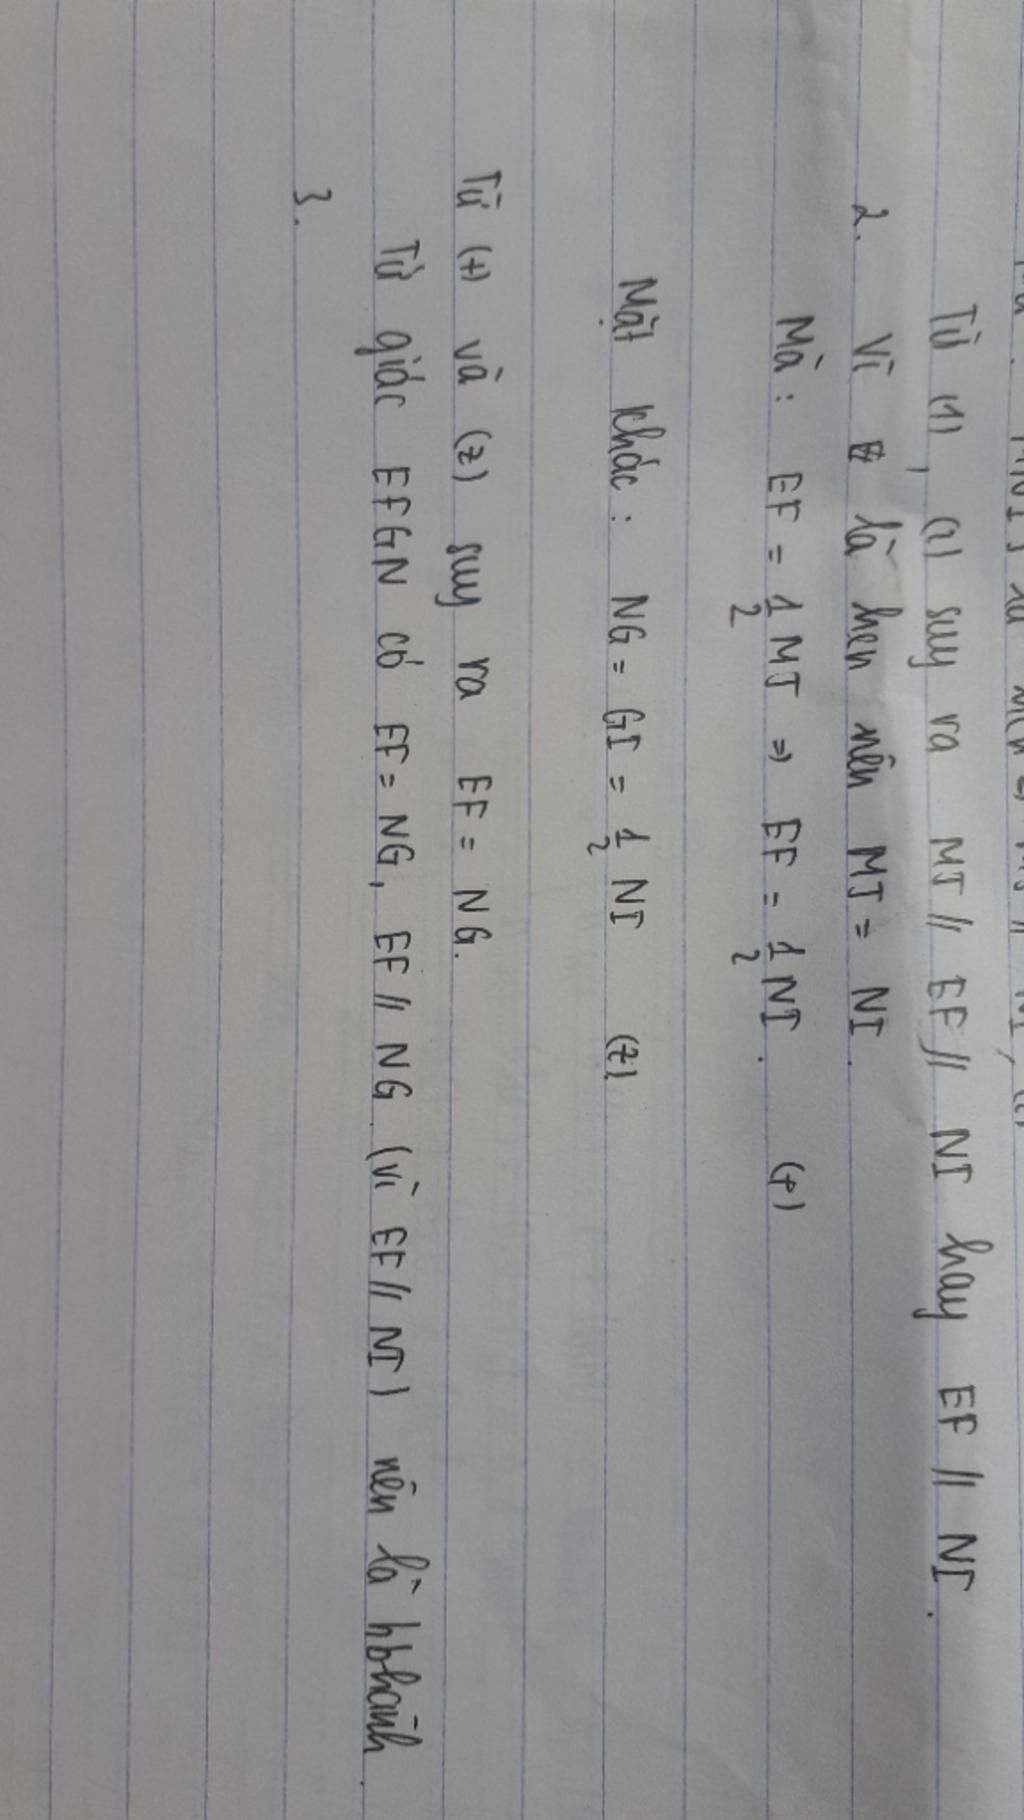 Từ (1), (2) suy ra MJ // EF // NI hay EF // NI.
2. Vì là hcn nên MJ = NI.
Mà: EF = 1/2 MJ => EF = 1/2 NI. (+)
Mặt khác: NG = GI = 1/2 NI (z)
Từ (+) và (z) suy ra EF = NG.
Tứ giác EFGN có EF = NG, EF // NG (vì EF // NI) nên là hbhành.
3.